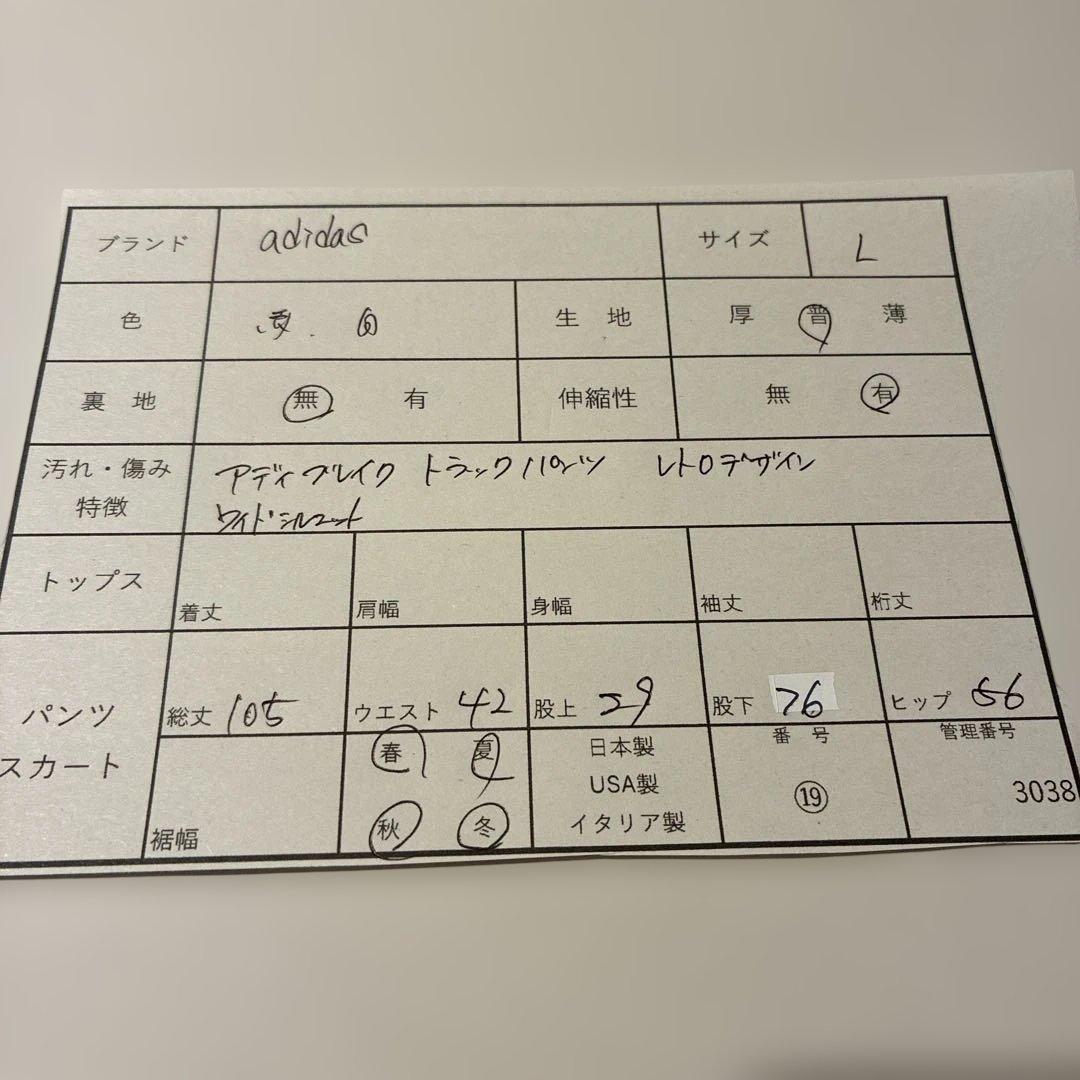 ブランド adidas サイズ L
色 白 生 地 厚 普 薄
裏 地 無 有 伸縮性 無 有
汚れ・傷み アディブレイク トラックパンツ レトロデザイン
特徴 ワイドシルエット
トップス 着丈 肩幅 身幅 袖丈 裄丈
パンツ 総丈 105 ウエスト 42 股上 29 股下 76 ヒップ 56
スカート 裾幅 春 夏 日本製 番 号 管理番号
USA製 ⑲ 3038
秋 冬 イタリア製